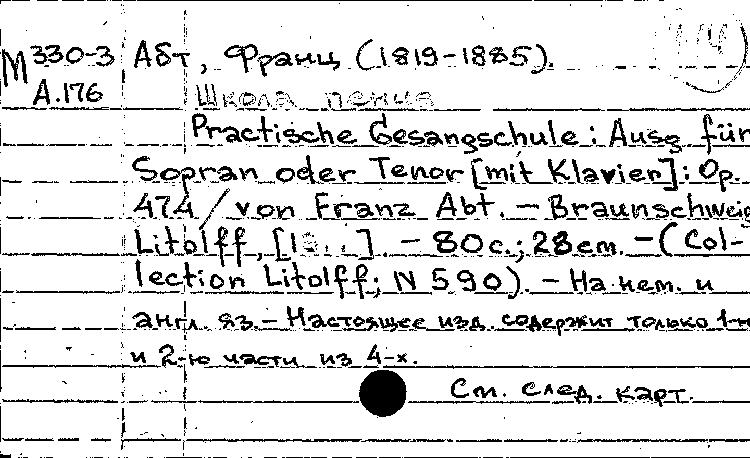 М 330-3 Абт, Франц (1819-1885).
А.176 Школа пения
Practische Gesangschule: Ausg für
Sopran oder Tenor [mit Klavier]: Op.
474 / von Franz Abt. — Braunschweig
Litolff, [18..]. — 80 с.; 28 cm. — (Col-
lection Litolff; N 590). — На нем. и
англ. яз. — Настоящее изд. содержит только 1-ю
и 2-ю части из 4-х.
См. след. карт.